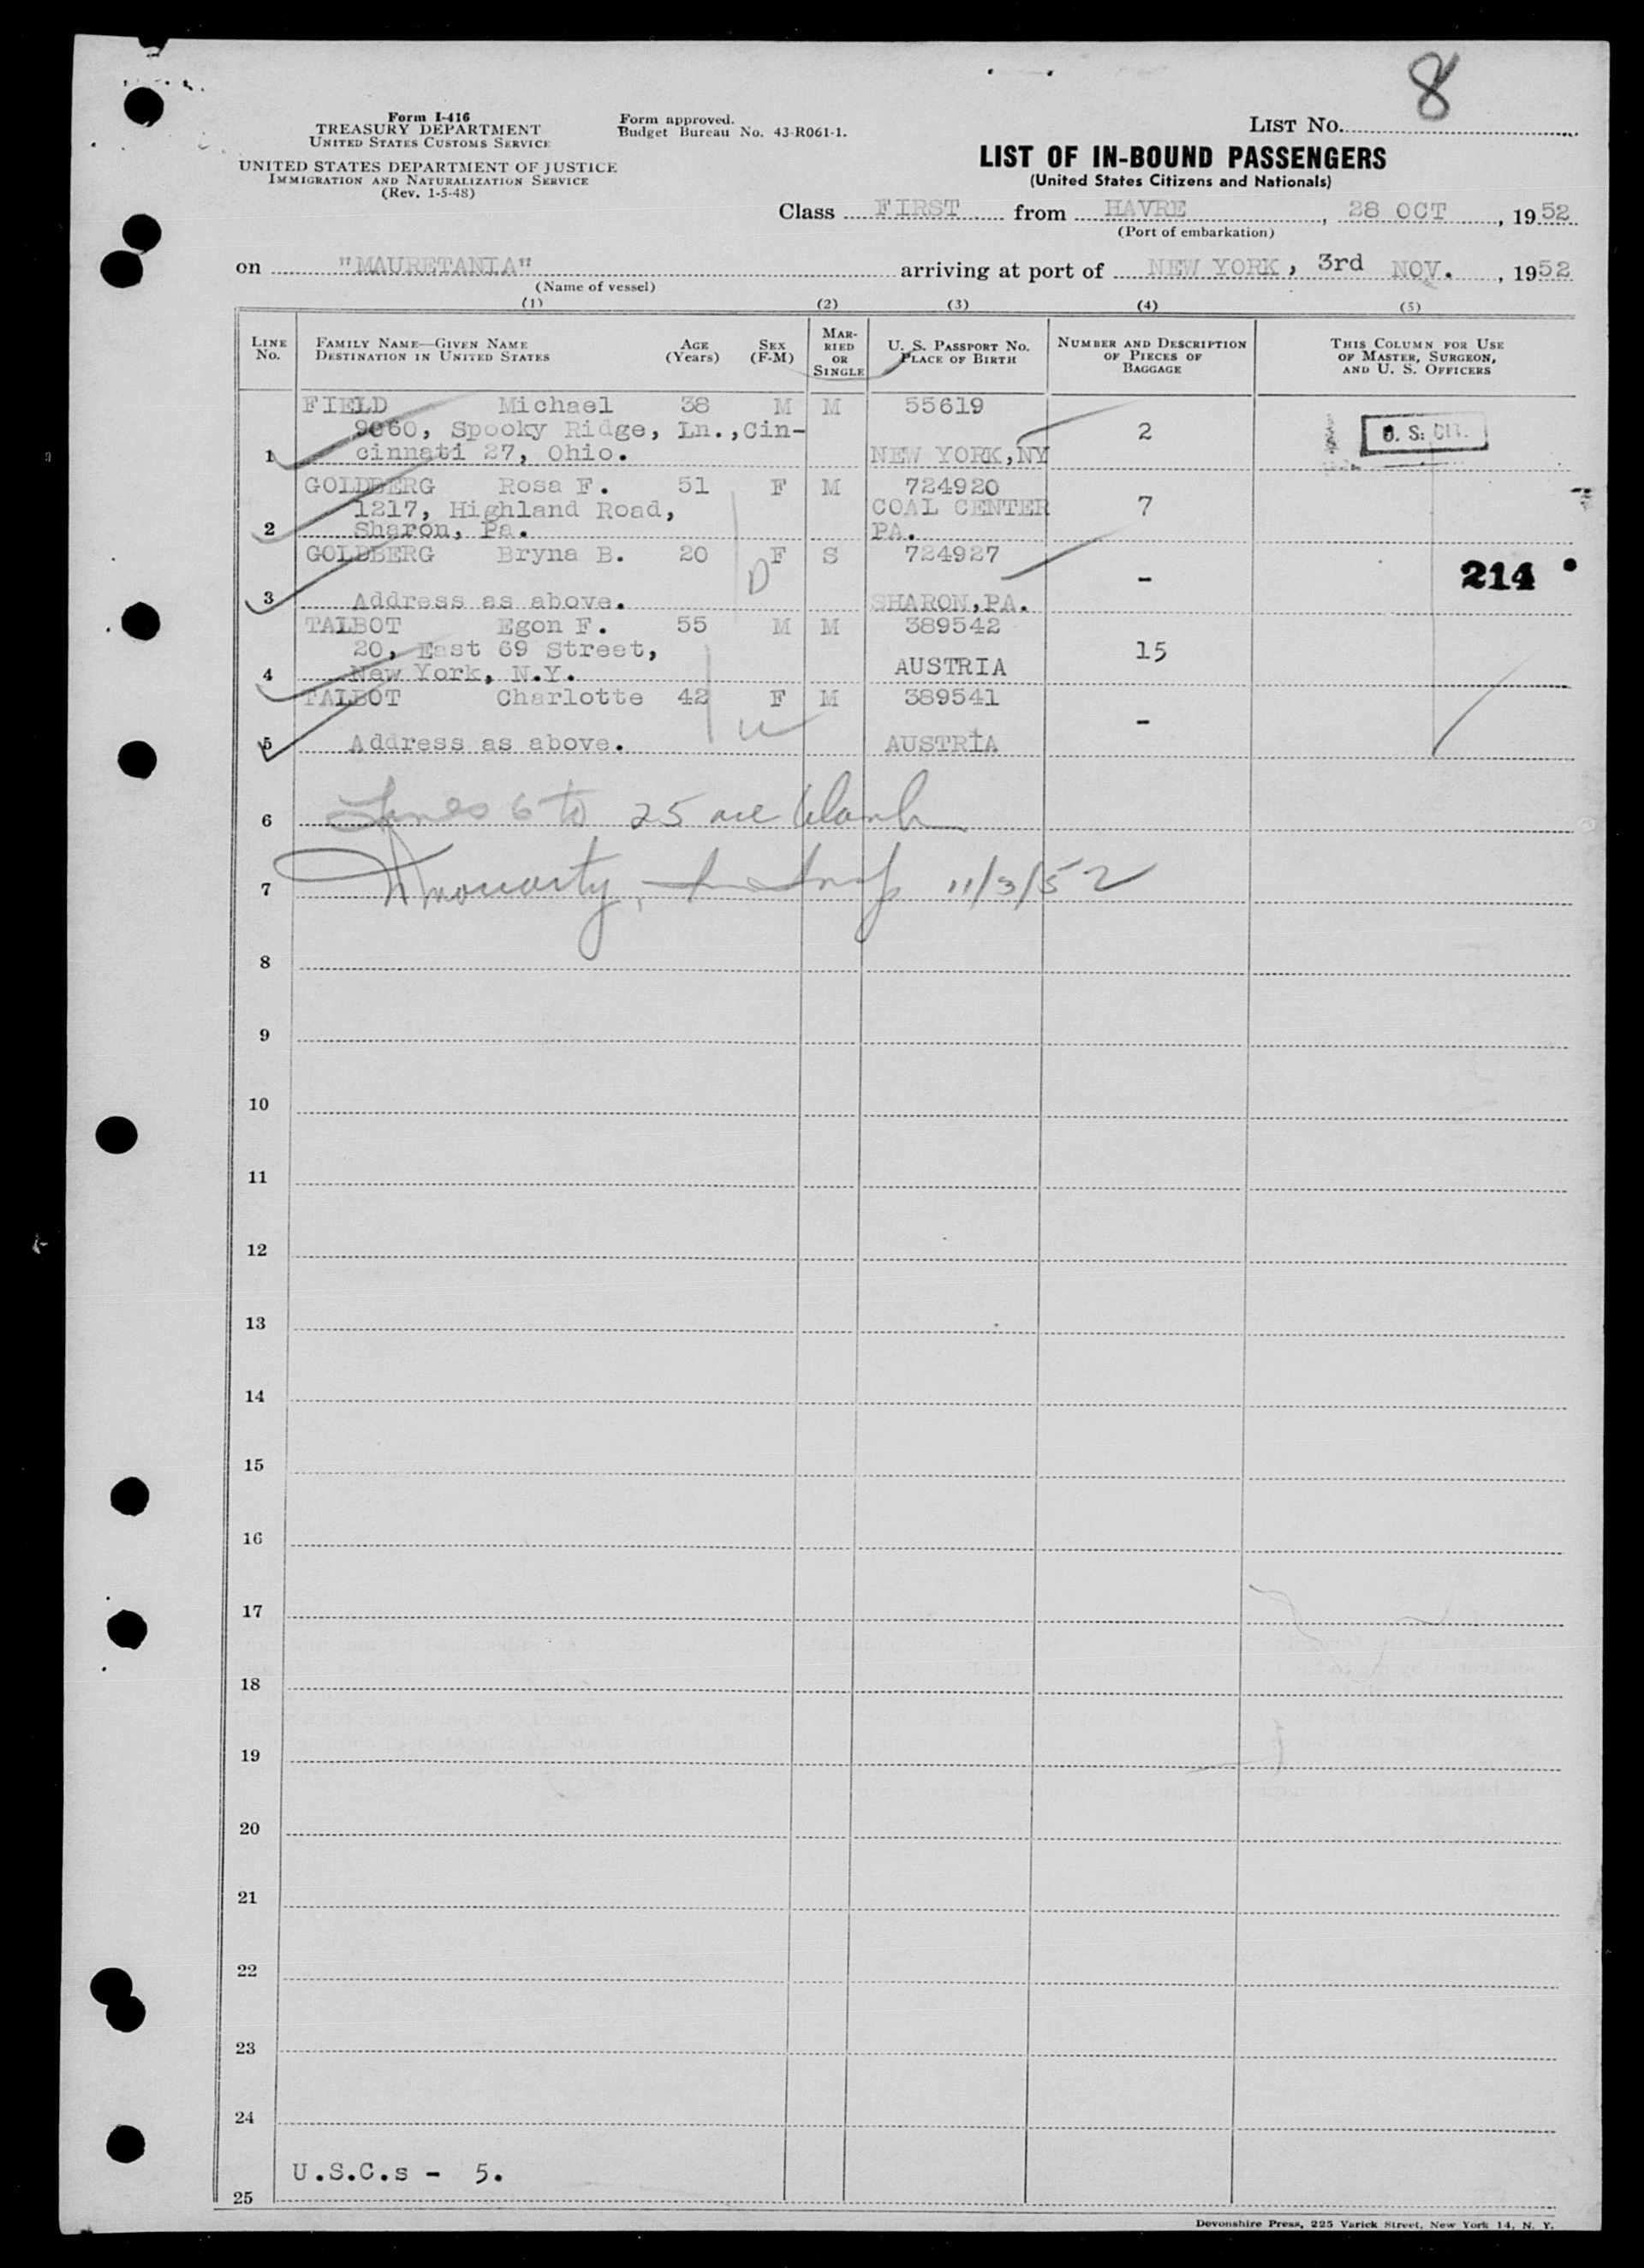 8
Form I-416
TREASURY DEPARTMENT
UNITED STATES CUSTOMS SERVICE
UNITED STATES DEPARTMENT OF JUSTICE
IMMIGRATION AND NATURALIZATION SERVICE
(Rev. 1-5-48)
Form approved.
Budget Bureau No. 43-R061-1.
LIST NO.
LIST OF IN-BOUND PASSENGERS
(United States Citizens and Nationals)
Class FIRST from HAVRE, 28 OCT, 1952
(Port of embarkation)
on "MAURETANIA" arriving at port of NEW YORK, 3rd NOV., 1952
(Name of vessel)
(1) (2) (3) (4) (5)
LINE No. FAMILY NAME—GIVEN NAME DESTINATION IN UNITED STATES AGE (Years) SEX (F-M) MARRIED OR SINGLE U. S. PASSPORT NO. PLACE OF BIRTH NUMBER AND DESCRIPTION OF PIECES OF BAGGAGE THIS COLUMN FOR USE OF MASTER, SURGEON, AND U. S. OFFICERS
FIELD Michael 38 M M 55619
9060, Spooky Ridge, Ln.,Cin- 2 U. S. CIT.
1 cinnati 27, Ohio. NEW YORK,NY
GOLDBERG Rosa F. 51 F M 724920
1217, Highland Road, COAL CENTER 7
2 Sharon, Pa. PA.
GOLDBERG Bryna B. 20 F S 724927
D - 214
3 Address as above. SHARON,PA.
TALBOT Egon F. 55 M M 389542
20, East 69 Street, 15
4 New York, N.Y. AUSTRIA
TALBOT Charlotte 42 F M 389541
-
5 Address as above. AUSTRIA
6 Lines 6 to 25 are blank
7 Moriarty, 11/3/52
8
9
10
11
12
13
14
15
16
17
18
19
20
21
22
23
24
U.S.C.s - 5.
25
Devonshire Press, 225 Varick Street, New York 14, N. Y.